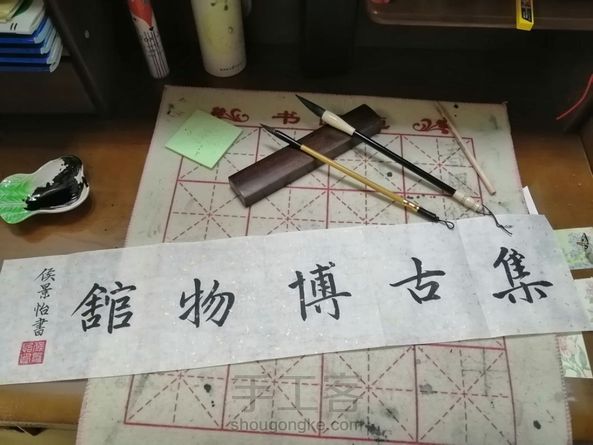 书
集古博物舘
侯景怡書
手工客
shougongke.com